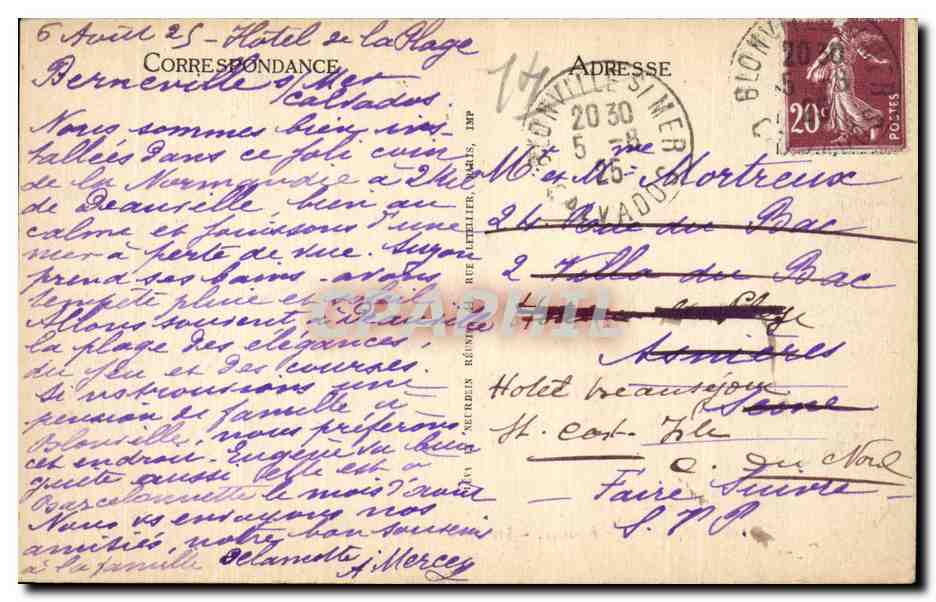 6 Août 25 - Hôtel de la Plage
CORRESPONDANCE
Berneville s/Mer
Calvados.
Nous sommes bien ins-
tallées dans ce joli coin
de la Normandie à
de Deauville, bien au
calme et jouissons d'une
mer à perte de vue. Suzon
prend ses bains. avons
tempête pluie et soleil.
Allons souvent à Deauville
la plage des élégances,
du jeu et des courses.
Si ns trouvions une
pension de famille à
Blonville, nous préférons
cet endroit. Eugénie
aussi, elle est à
Barcelonnette le mois d'août
Nous vs envoyons nos
amitiés, notre bon souvenir
à la famille Delamotte A Mercey
NEURDEIN RÉUNIS RUE LETELLIER, PARIS, IMP
17
ADRESSE
BLONVILLE S/ MER
20 30
5 -8
25
CALVADOS
BLONV MER
20 30
5 8
20c
POSTES
Mr et Mme Mortreux
24 Rue du Bac
2 Villa du Bac
Asnières
Seine
Hotel beauséjour
St. Cast
C. du Nord
Faire Suivre
S. V. P.
CPAPHIL